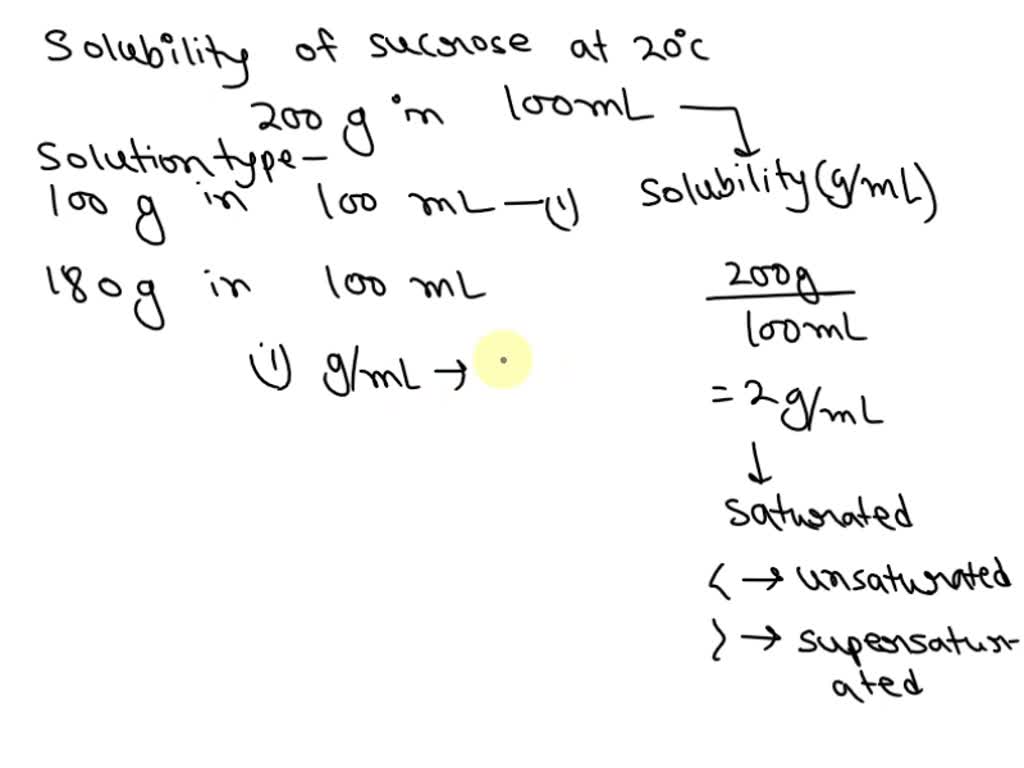 Solubility of sucrose at 20°C
200 g in 100mL →
Solution type –
100 g in 100 mL – (1)
Solubility (g/mL)
180g in 100 mL
200g
100mL
(i) g/mL →
= 2 g/mL
↓
saturated
< → unsaturated
> → supersatur-
ated